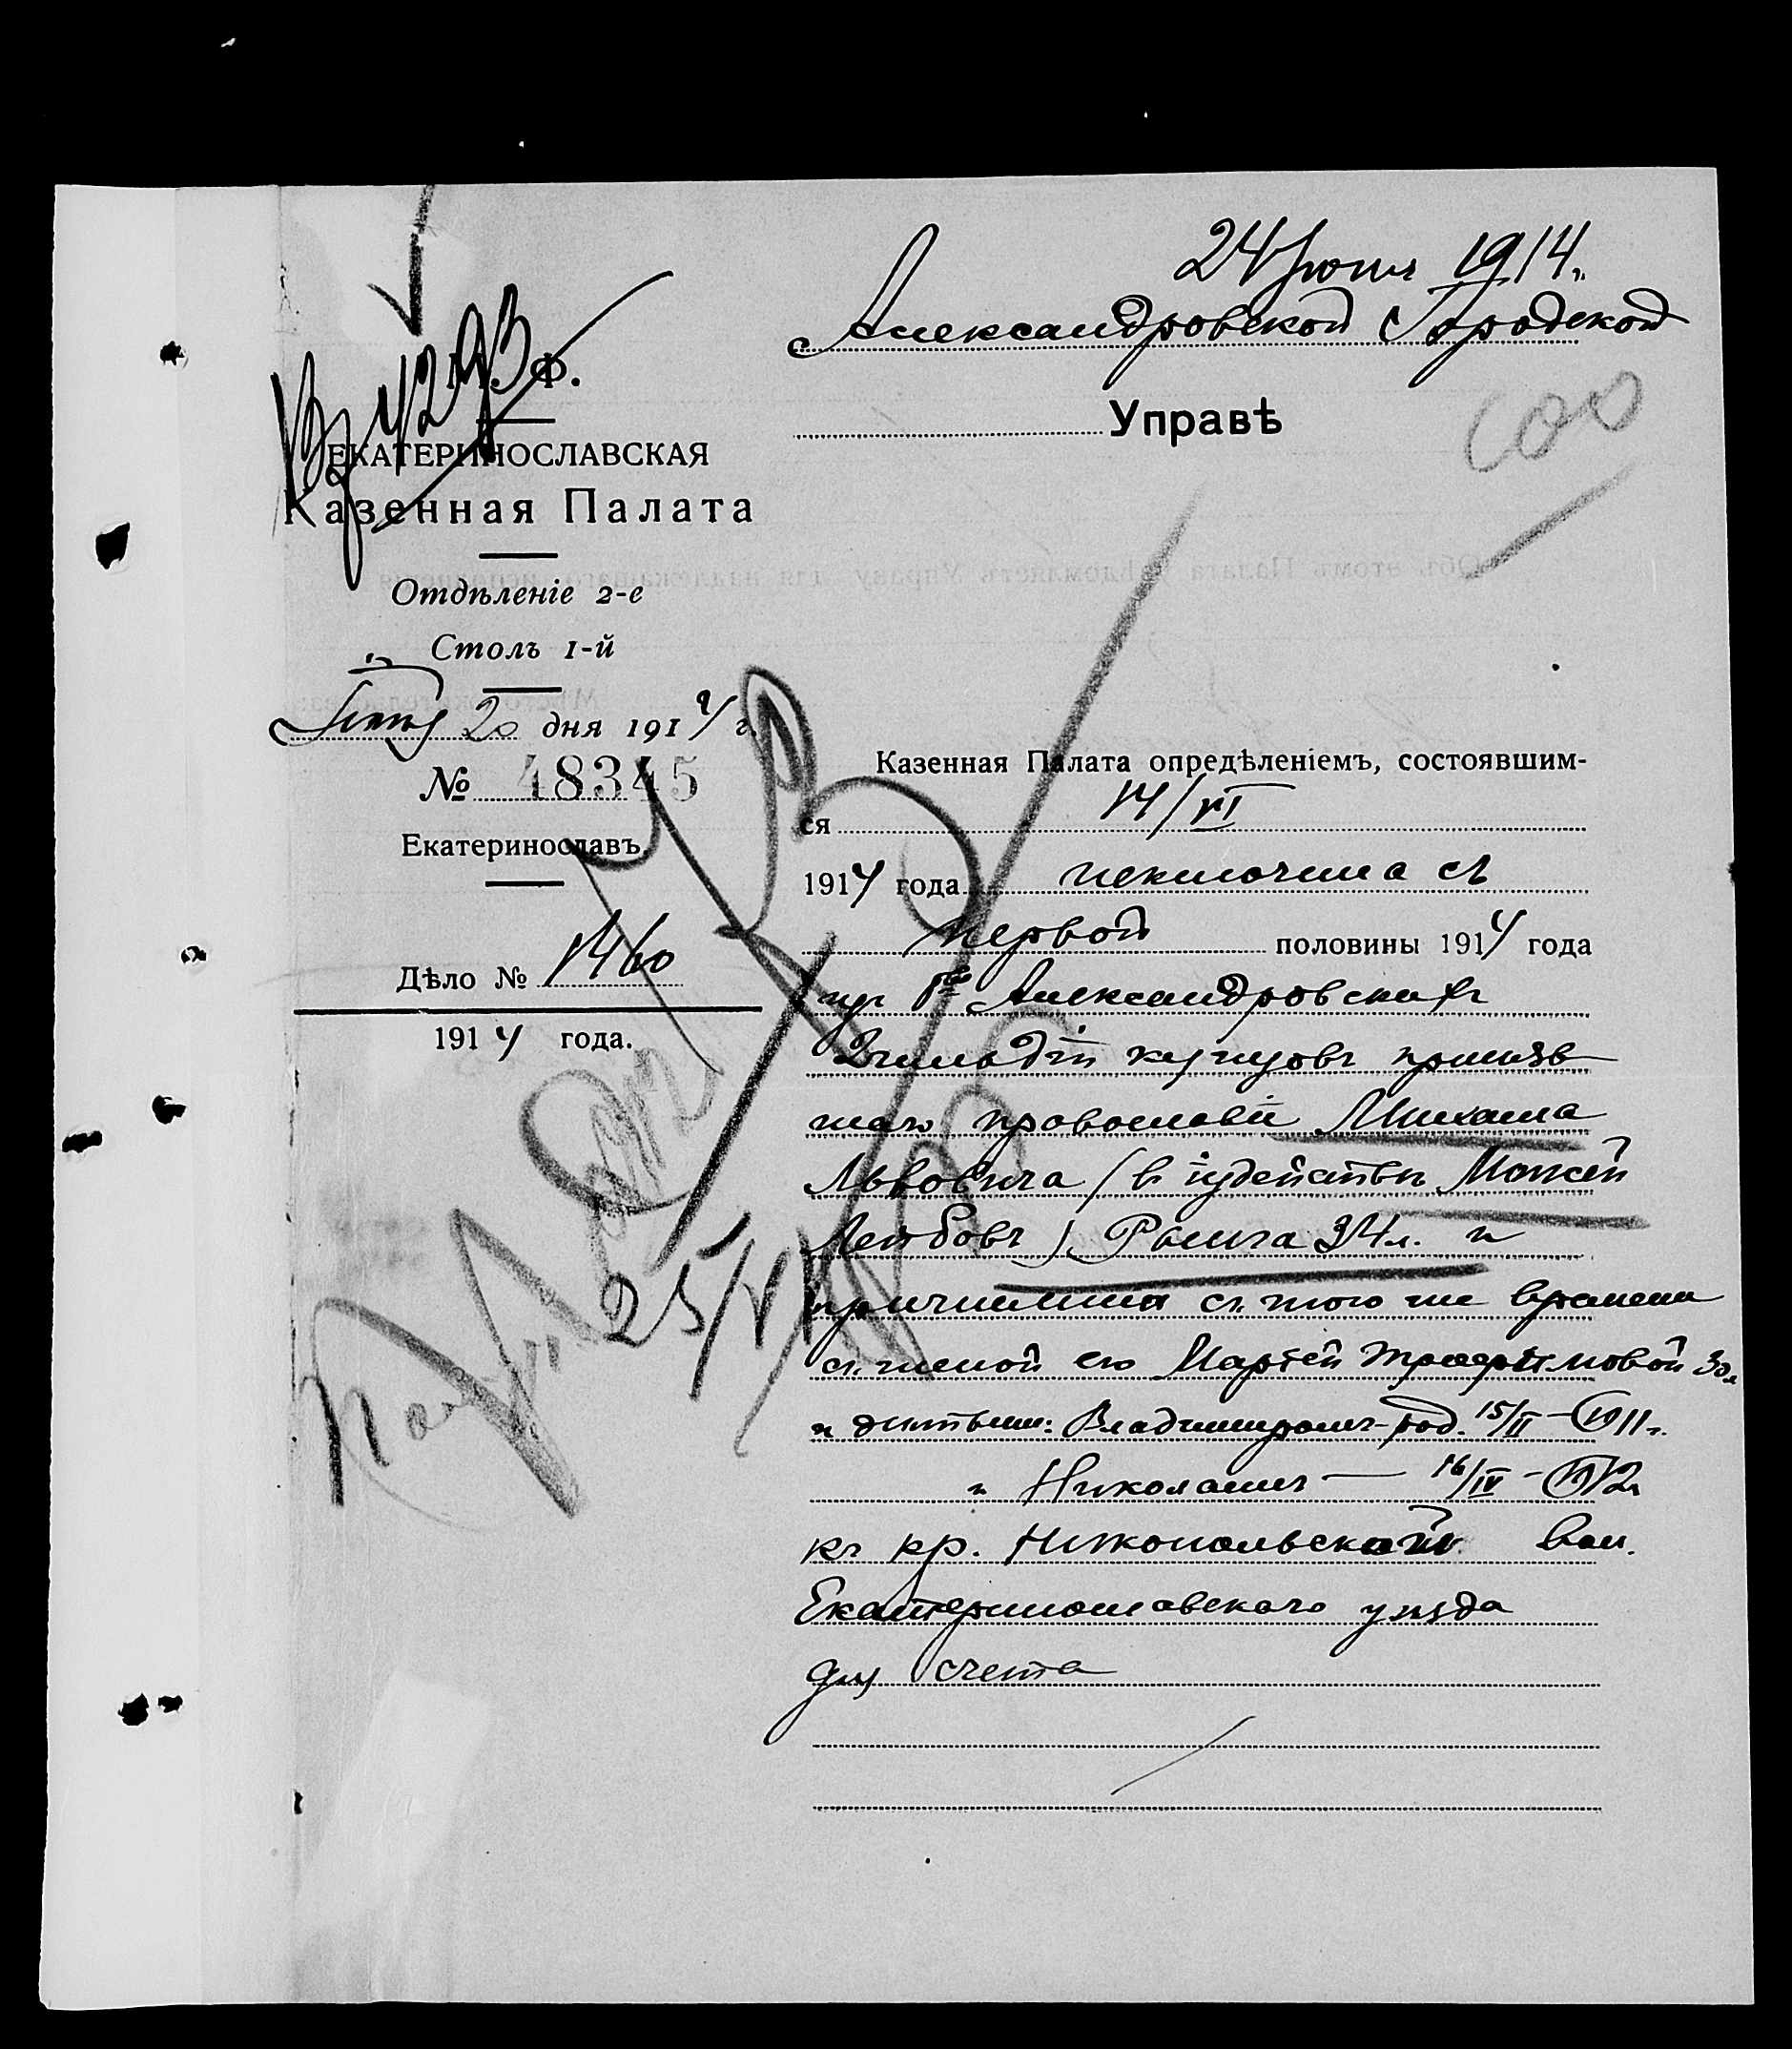 24 Іюня 1914 г.
Александровской Городской
Управѣ
600
Вх 4293
М. Ф.
ЕКАТЕРИНОСЛАВСКАЯ
Казенная Палата
Отдѣленіе 2-е
Столъ 1-й
Іюня 20 дня 1914 г.
№ 48345
Екатеринославъ.
Дѣло № 1460
1914 года.
25/VI
Казенная Палата опредѣленіемъ, состоявшим-
ся 14/VI
1914 года исключила съ
первой половины 1914 года
изъ Александровскихъ
2 гильдіи купцовъ приняв
шаго православіе Михаила
Львовича (в іудействѣ Моисей
Лейбовъ) 34 л. и
причислила съ того же времени
съ женой его Маріей Трофимовой 30 л
и дѣтьми: Владимиромъ род. 15/II - 1911 г.
и Николаемъ — 16/IV - 1912
къ кр. Никопольской вол.
Екатеринославскаго уѣзда
для счета